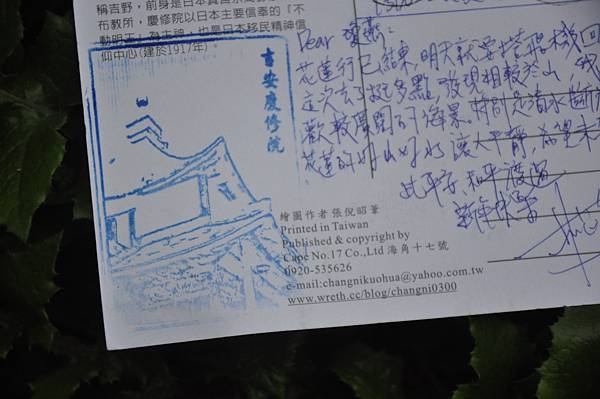 稱吉野，前身是日本真言宗高野
布教所，慶修院以日本主要信奉的『不
動明王』為主神，也是日本移民精神信
仰中心(建於1917年)。
吉安慶修院
Dear
花蓮行已結束,明天就要搭飛機回
這次去了挺多點,發現相較於山,我
歡較廣闊的海景,特別是清水斷
花蓮的好山好水讓人平靜,希望
此平安、和平
繪圖作者 張倪昭筆
Printed in Taiwan
Published & copyright by
Cape No.17 Co.,Ltd 海角十七號
0920-535626
e-mail:changnikuohua@yahoo.com.tw
www.wreth.cc/blog/changni0300